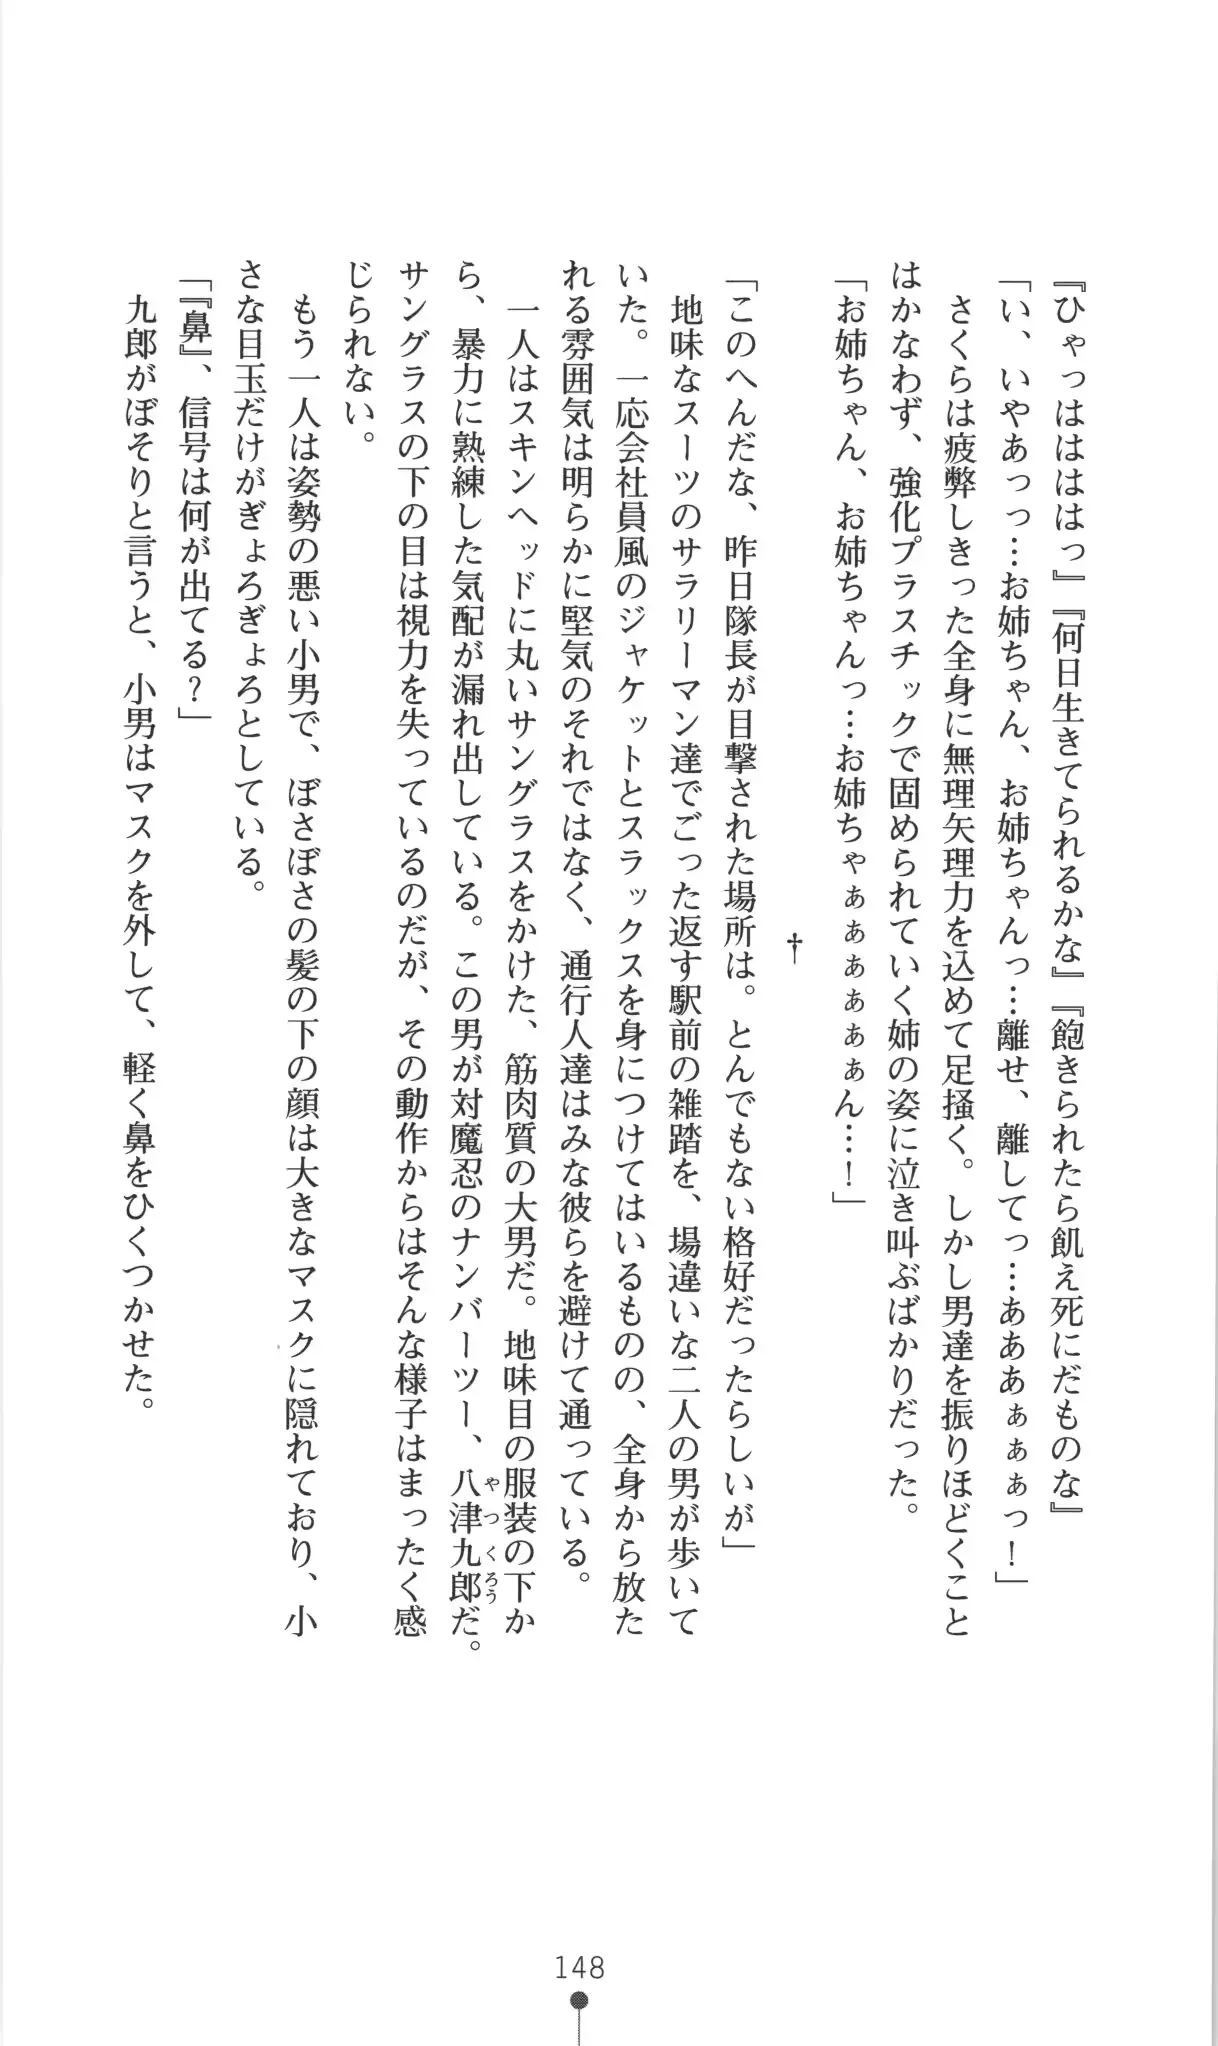 『ひゃっはははっ』『何日生きてられるかな』『飽きられたら飢え死にだものな』
「い、いやあっっ…お姉ちゃん、お姉ちゃんっ…離せ、離してっ…あああぁぁぁっ！」
　さくらは疲弊しきった全身に無理矢理力を込めて足掻く。しかし男達を振りほどくこと
はかなわず、強化プラスチックで固められていく姉の姿に泣き叫ぶばかりだった。
「お姉ちゃん、お姉ちゃんっ…お姉ちゃぁぁぁぁぁぁん…！」
†
「このへんだな、昨日隊長が目撃された場所は。とんでもない格好だったらしいが」
　地味なスーツのサラリーマン達でごった返す駅前の雑踏を、場違いな二人の男が歩いて
いた。一応会社員風のジャケットとスラックスを身につけてはいるものの、全身から放た
れる雰囲気は明らかに堅気のそれではなく、通行人達はみな彼らを避けて通っている。
　一人はスキンヘッドに丸いサングラスをかけた、筋肉質の大男だ。地味目の服装の下か
ら、暴力に熟練した気配が漏れ出している。この男が対魔忍のナンバーツー、八津九郎だ。
やつくろう
サングラスの下の目は視力を失っているのだが、その動作からはそんな様子はまったく感
じられない。
　もう一人は姿勢の悪い小男で、ぼさぼさの髪の下の顔は大きなマスクに隠れており、小
さな目玉だけがぎょろぎょろとしている。
「『鼻』、信号は何が出てる？」
　九郎がぼそりと言うと、小男はマスクを外して、軽く鼻をひくつかせた。
148